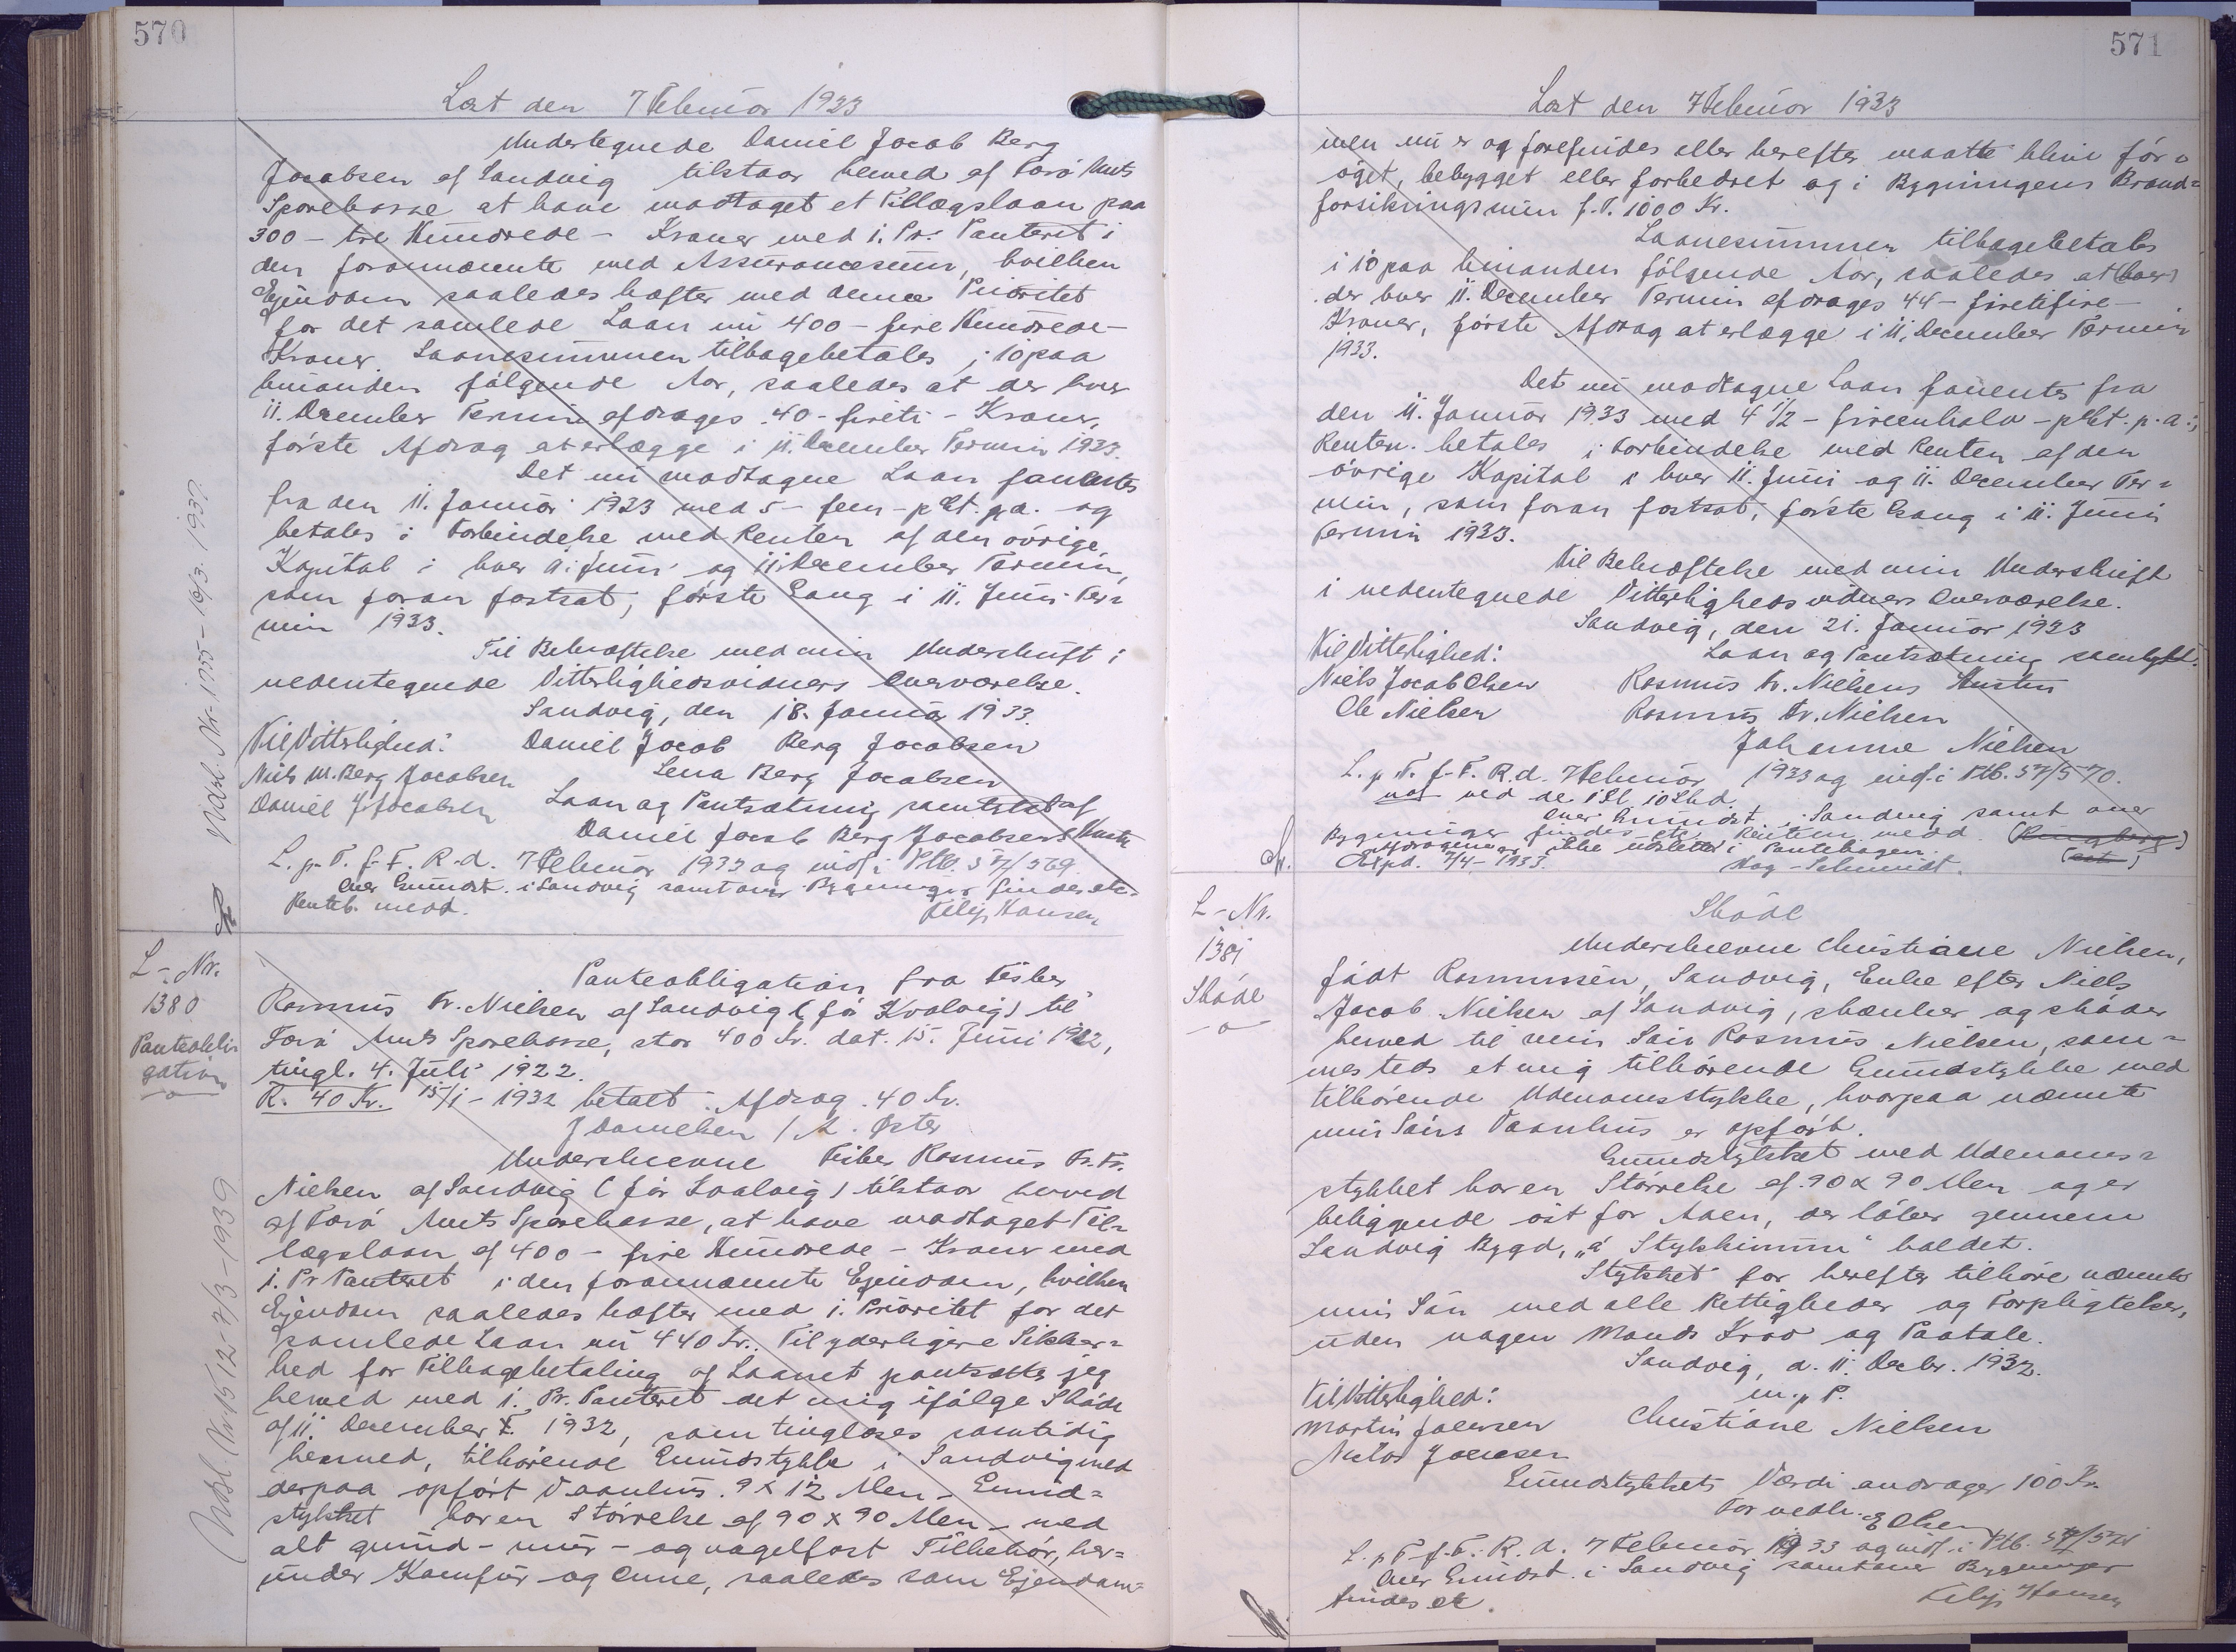 570
Læst den 7 Februar 1933
Undertegnede Daniel Jacob Berg
Jacobsen af Sandvig tilstaar herved af Færö Amts
Sparekasse at have modtaget et Tillægslaan paa
300 - tre Hundrede - Kroner med 1. Pr. Panteret i
den forannævnte med Assurancesum, hvilken
Ejendom saaledes hæfter med denne Prioritet
for det samlede Laan nu 400 - fire Hundrede -
Kroner. Laanesummen tilbagebetales i 10 paa
hinanden følgende Aar, saaledes at der hver
11. December Termin afdrages 40 - fireti - Kroner,
første Afdrag at erlægge i 11. December Termin 1933.
Det nu modtagne Laan forrentes
fra den 11. Januar 1933 med 5 - fem - pCt. p.a. og
betales i Forbindelse med Renten af den øvrige
Kapital i hver 11. Juni og 11 December Termin,
som foran fastsat, første Gang i 11. Juni Ter=
min 1933.
Til Bekræftelse med min Underskrift i
nedentegnede Vitterlighedsvidners Overværelse.
Sandvig, den 18. Januar 1933.
Til Vitterlighed: Daniel Jacob Berg Jacobsen
Niels M. Berg Jacobsen Lena Berg Jacobsen
Daniel J Jacobsen Laan og Pantsætning samtykket af
Daniel Jacob Berg Jacobsens Hustru
L. p. T. f. F. R. d. 7 Februar 1933 og indf. i Ptb. S 57/569
Over Grundst. i Sandvig samt over Bygninger findes etc.
Renteb. medd. Filip Hansen
Udsl. Nr. 1555 - 16/3. 1937.
L-Nr.
1380
Panteobli=
gation
Panteobligation fra Fisker
Rasmus Fr. Nielsen af Sandvig (før Kvalvig) til
Færö Amts Sparekasse, stor 400 Kr. dat. 15. Juni 1922,
tingl. 4. Juli 1922.
R. 40 Kr. 15/1 - 1932 betalt Afdrag 40 Kr.
J Danielsen / M. Øster
Underskrevne Fisker Rasmus Fr. Fr.
Nielsen af Sandvig (før Kvalvig) tilstaar herved
af Færö Amts Sparekasse, at have modtaget Til=
lægslaan af 400 - fire Hundrede - Kroner med
1. Pr Panteret i den forannævnte Ejendom, hvilken
Ejendom saaledes hæfter med 1. Prioritet for det
samlede Laan nu 440 Kr.. Til yderligere Sikker=
hed for Tilbagebetaling af Laanet pantsætter jeg
herved med 1. Pr. Panteret det mig ifølge Skøde
af 11. December F. 1932, som tinglæses samtidig
hermed, tilhørende Grundstykke i Sandvig med
derpaa opført Vaanhus. 9 x 12 Alen - Grund=
stykket har en Størrelse af 90 x 90 Alen - med
alt grund - mur - og nagelfast Tilbehør, her=
under Komfur og Ovne, saaledes som Ejendom=
Udsl. Nr. 1512 - 7/3 - 1939
571
Læst den 7 Februar 1933
men nu er og forefindes eller herefter maatte blive for=
øget, bebygget eller forbedret og i Bygningens Brand=
forsikringssum f. T. 1000 Kr.
Laanesummen tilbagebetales
i 10 paa hinanden følgende Aar, saaledes at (hver)
der hver 11. December Termin afdrages 44 - firetifire -
Kroner, første Afdrag at erlægge i 11. December Termin
1933.
Det nu modtagne Laan forrentes fra
den 11. Januar 1933 med 4 1/2 - fireenhalv - pCt. p. a.;
Renten betales i Forbindelse med Renten af den
øvrige Kapital i hver 11. Juni og 11. December Ter=
min, som foran fastsat, første Gang i 11. Juni
Termin 1933.
Til Bekræftelse med min Underskrift
i nedentegnede Vitterlighedsvidners Overværelse.
Sandvig, den 21. Januar 1933
Til Vitterlighed: Laan og Pantsætning samtykt.
Niels Jacob Olsen Rasmus Fr. Nielsens Hustru
Ole Nielsen Rasmus Fr. Nielsen
Johanne Nielsen
L. p. T. f. F. R. d. 7 Februar 1933 og indf. i Ptb. S 7/570.
Over Grundst. i Sandvig samt over
Bygninger findes etc. Renten medd.
Afdragene er ikke udslettet i Pantebogen.
Expd. 7/4 - 1933. Høg-Schmidt.
L-Nr.
1381
Skøde
Skøde
Underskrevne Christiane Nielsen,
født Rasmussen, Sandvig, Enke efter Niels
Jacob Nielsen af Sandvig, skænker og skøder
herved til min Søn Rasmus Nielsen, sam=
mesteds et mig tilhørende Grundstykke med
tilhørende Udenomsstykke, hvorpaa nævnte
min Søns Vaanhus er opført.
Grundstykket med Udenoms=
stykket har en Størrelse af 90 x 90 Alen og er
beliggende øst for Aaen, der løber gennem
Sandvig Bygd, "á Stykkinum" kaldet.
Stykket for herefter tilhøre nævnte
min Søn med alle Rettigheder og Forpligtelser,
uden nogen Mands Krav og Paatale.
Sandvig, d. 11. Decbr. 1932.
Til Vitterlighed: m. p. P.
Martin Joensen Christiane Nielsen
Joensen
Grundstykkets Værdi andrager 100 Kr.
For vedk. E Olsen
L. p. T. f. F. R. d. 7 Februar 1933 og indf. i Ptb. S 7/571
Over Grundst. i Sandvig samt over Bygninger
findes etc. Filip Hansen